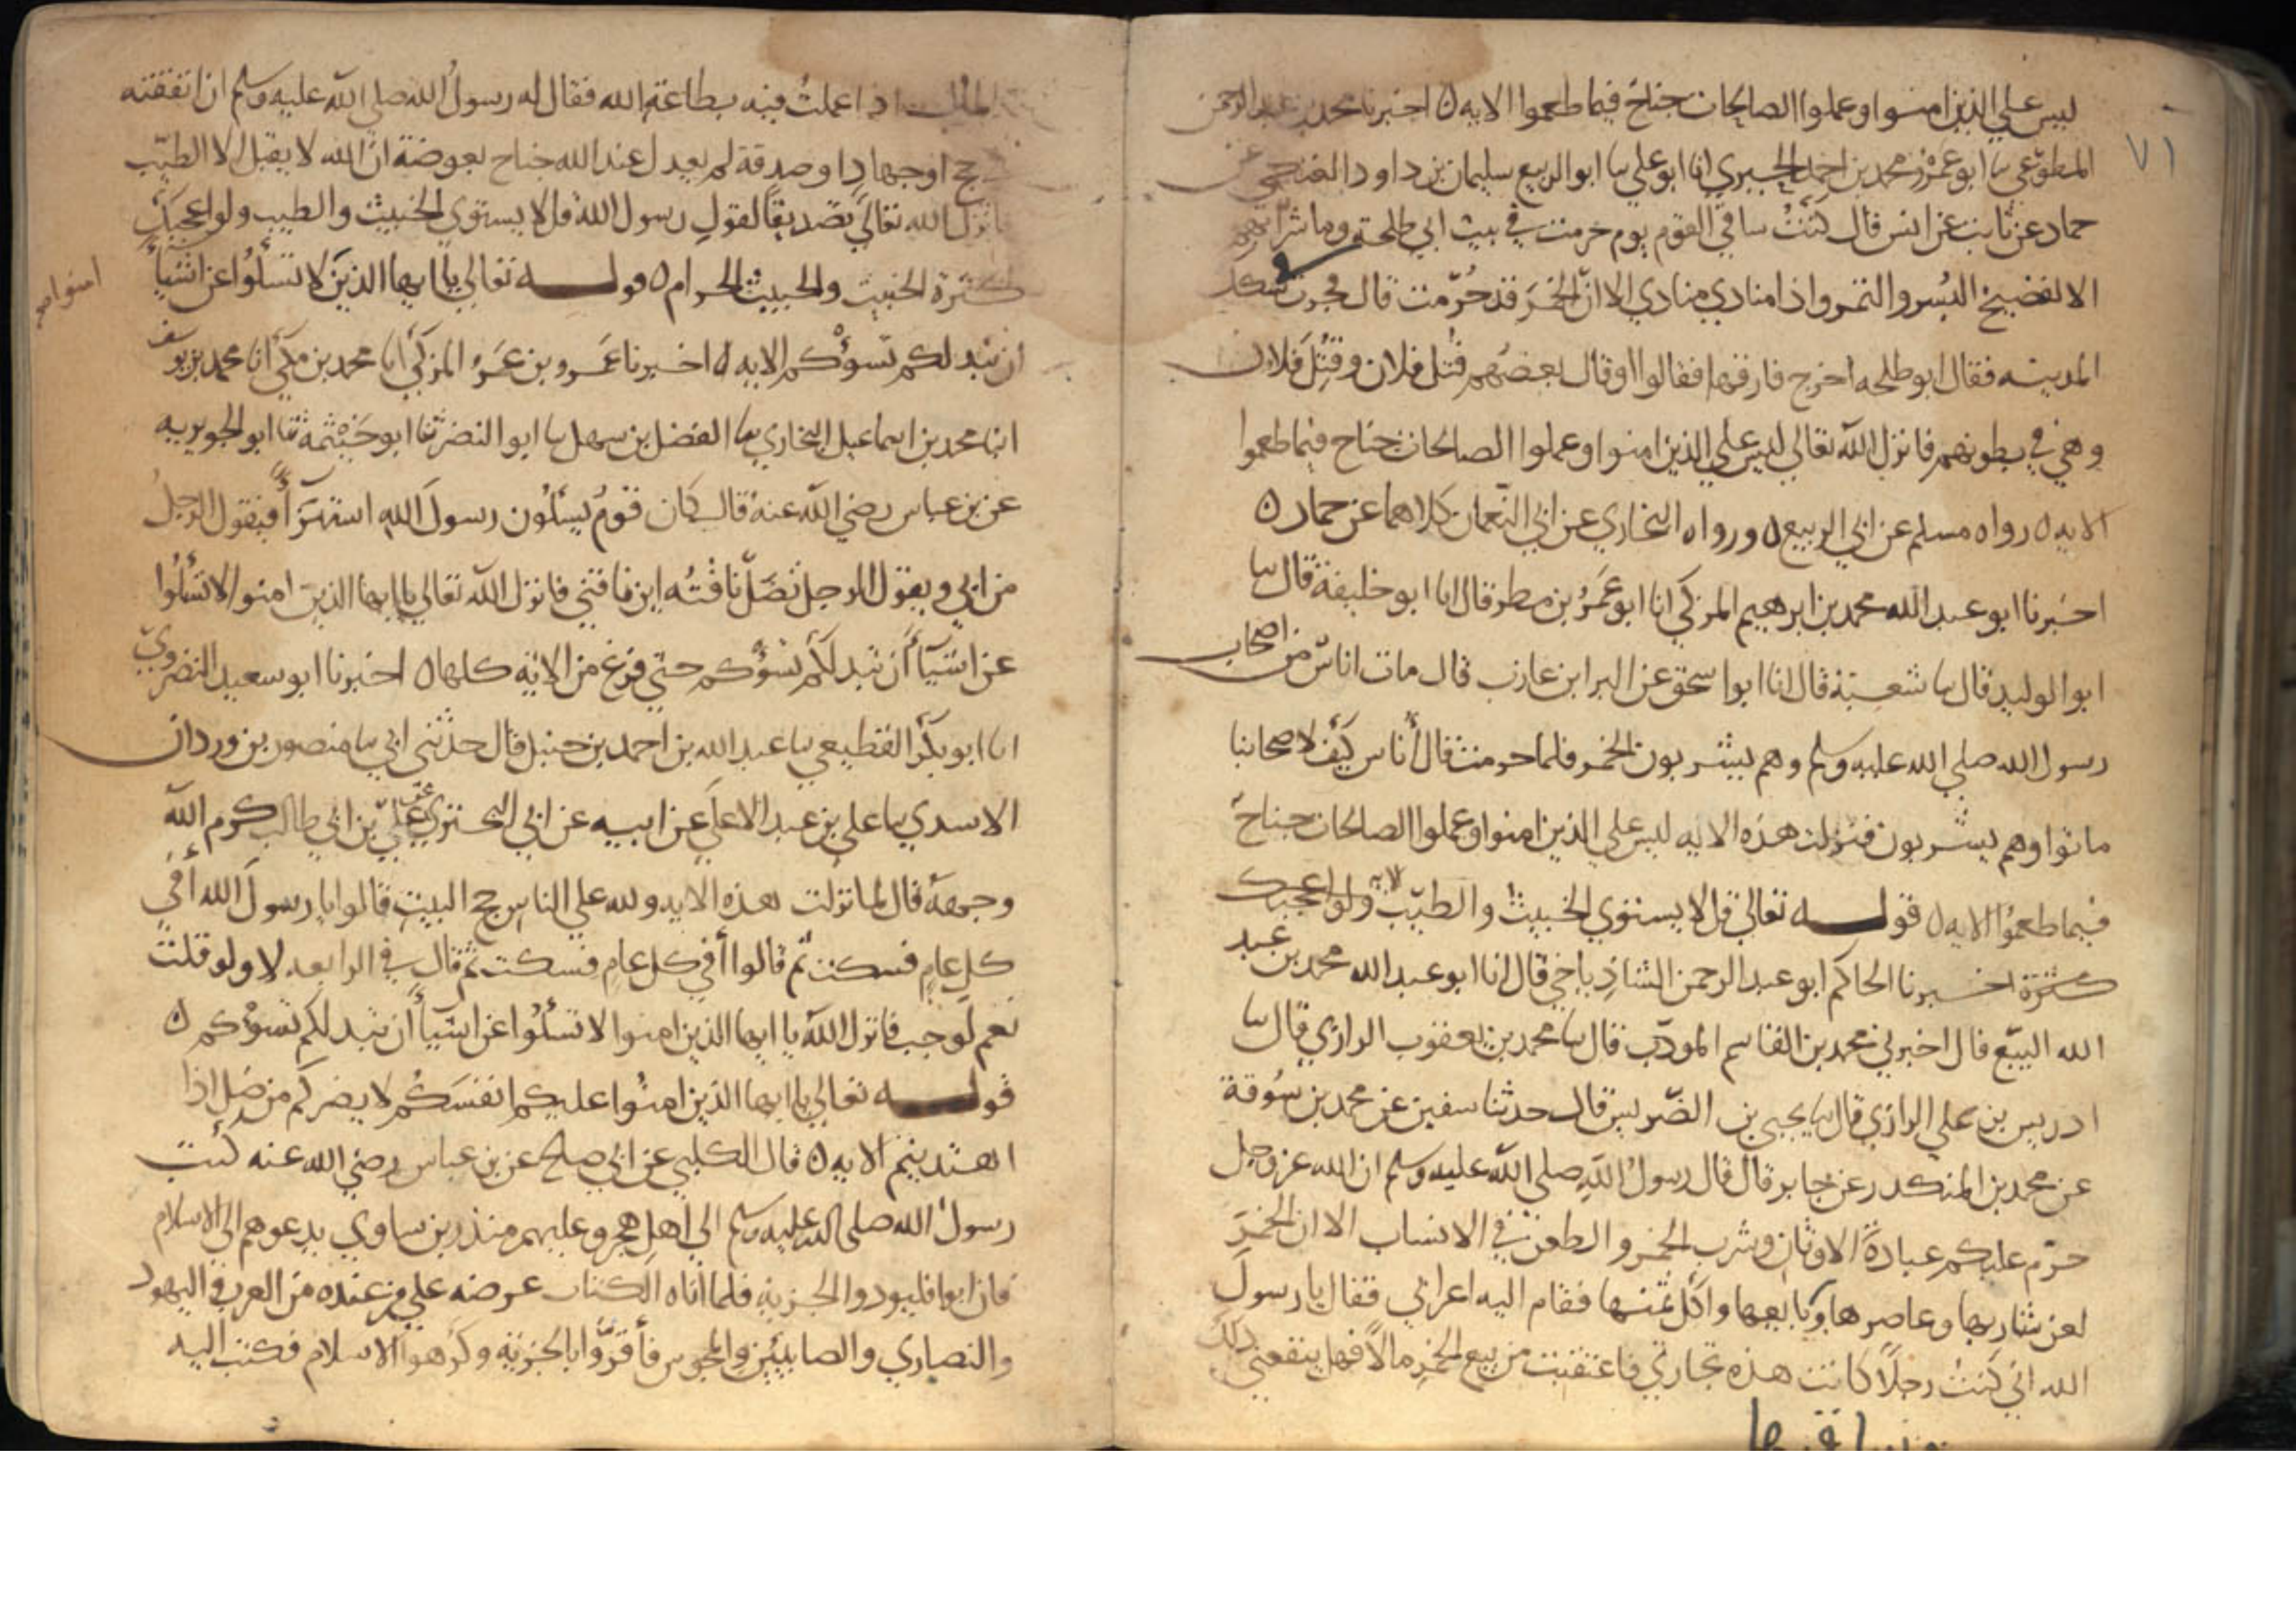 ٧١
ليس علي الذين امنوا وعملوا الصالحات جناح فيما طعموا الايه ه اخبرنا محمد بن عبد الرحمن
المطوعي سا ابو عمرو محمد بن احمد الحيري انا ابو علي سا ابو الربيع سليمان بن داود العتكي عن
حماد عن ثابت عن انس قال كنت ساقي القوم يوم حرمت في بيت ابي طلحة وما شرابهم
الا الفضيخ البسر والتمر واذا منادي منادي الا ان الخمر قد حرمت قال فجرت في سكك
المدينه فقال ابو طلحه اخرج فارقها فقالوا او قال بعضهم قتل فلان وقتل فلان
وهي في بطونهم فانزل الله تعالي ليس علي الذين امنوا وعملوا الصالحات جناح فيما طعموا
الايه ه رواه مسلم عن ابي الربيع ه ورواه البخاري عن ابي النعمان كلاهما عن حماد ه
اخبرنا ابو عبد الله محمد بن ابرهيم المزكي انا ابو عمرو بن مطر قال انا ابو خليفة قال سا
ابو الوليد قال سا شعبة قال انا ابو اسحق عن البرا ابن عازب قال مات اناس من اصحاب
رسول الله صلي الله عليه وسلم وهم يشربون الخمر فلما حرمت قال أناس كيف لاصحابنا
ماتوا وهم يشربون فنزلت هذه الايه ليس علي الذين امنوا وعملوا الصالحات جناح
فيما طعموا الايه ه قوله تعالي قل لا يستوي الخبيث والطيب ولو اعجبك الايه
كثرة اخبرنا الحاكم ابو عبد الرحمن الشاذياخي قال انا ابو عبد الله محمد بن عبد
الله البيع قال اخبرني محمد بن القاسم المودب قال سا محمد بن يعقوب الرازي قال سا
ادريس بن علي الرازي قال سا يحيى بن الضريس قال حدثنا سفين عن محمد بن سوقة
عن محمد بن المنكدر عن جابر قال قال رسول الله صلي الله عليه وسلم ان الله عز وجل
حرم عليكم عبادة الاوثان وشرب الخمر والطعن في الانساب الا ان الخمر
لعن شاربها وعاصرها وبايعها واكل ثمنها فقام اليه اعرابي فقال يا رسول
الله اني كنت رجلا كانت هذه تجارتي فاعتقبت من بيع الخمر مالا فهل ينفعني ذلك
المال اذا عملت فيه بطاعة الله فقال له رسول الله صلي الله عليه وسلم ان انفقته
حج او جهاد او صدقة لم يعدل عند الله جناح بعوضة ان الله لا يقبل الا الطيب
فانزل الله تعالي تصديقا لقول رسول الله قل لا يستوي الخبيث والطيب ولو اعجبك
كثرة الخبيث والخبيث الحرام ه قوله تعالي يا ايها الذين لا تسألوا عن اشيا
امنوا
ان تبد لكم تسؤكم الايه ه اخبرنا عمرو بن عمرو المزكي انا محمد بن مكي انا محمد بن يوسف
انا محمد بن اسماعيل البخاري سا الفضل بن سهل سا ابو النضر ثنا ابو خيثمة ثنا ابو الجويريه
عن بن عباس رضي الله عنه قال كان قوم يسئلون رسول الله استهزأ فيقول الرجل
من ابي ويقول الرجل تضل ناقته اين ناقتي فانزل الله تعالي يا ايها الذين امنوا لا تسألوا
عن اشيا أن تبد لكم تسؤكم حتي فرغ من الاية كلها ه اخبرنا ابو سعيد النضروي
انا ابو بكر القطيعي سا عبد الله بن احمد بن حنبل قال حدثني ابي سا منصور بن وردان
الاسدي سا علي بن عبد الاعلي عن ابيه عن ابي البختري عن علي بن ابي طالب كرم الله
وجهه قال لما نزلت هذه الايه ولله علي الناس حج البيت قالوا يا رسول الله أفي
كل عام فسكت ثم قالوا أفي كل عام فسكت ثم قال في الرابعه لا ولو قلت
نعم لوجب فانزل الله يا ايها الذين امنوا لا تسألوا عن اشيا أن تبد لكم تسؤكم ه
قوله تعالي يا ايها الذين امنوا عليكم انفسكم لا يضركم من ضل اذا
اهتديتم الايه ه قال الكلبي عن ابي صلح عن بن عباس رضي الله عنه كتب
رسول الله صلى الله عليه وسلم الي اهل هجر وعليهم منذر بن ساوي يدعوهم الي الاسلام
فان ابوا فليودوا الجزية فلما اتاه الكتاب عرضه علي من عنده من العرب واليهود
والنصاري والصابيين والمجوس فأقروا بالجزية وكرهوا الاسلام فكتب اليه